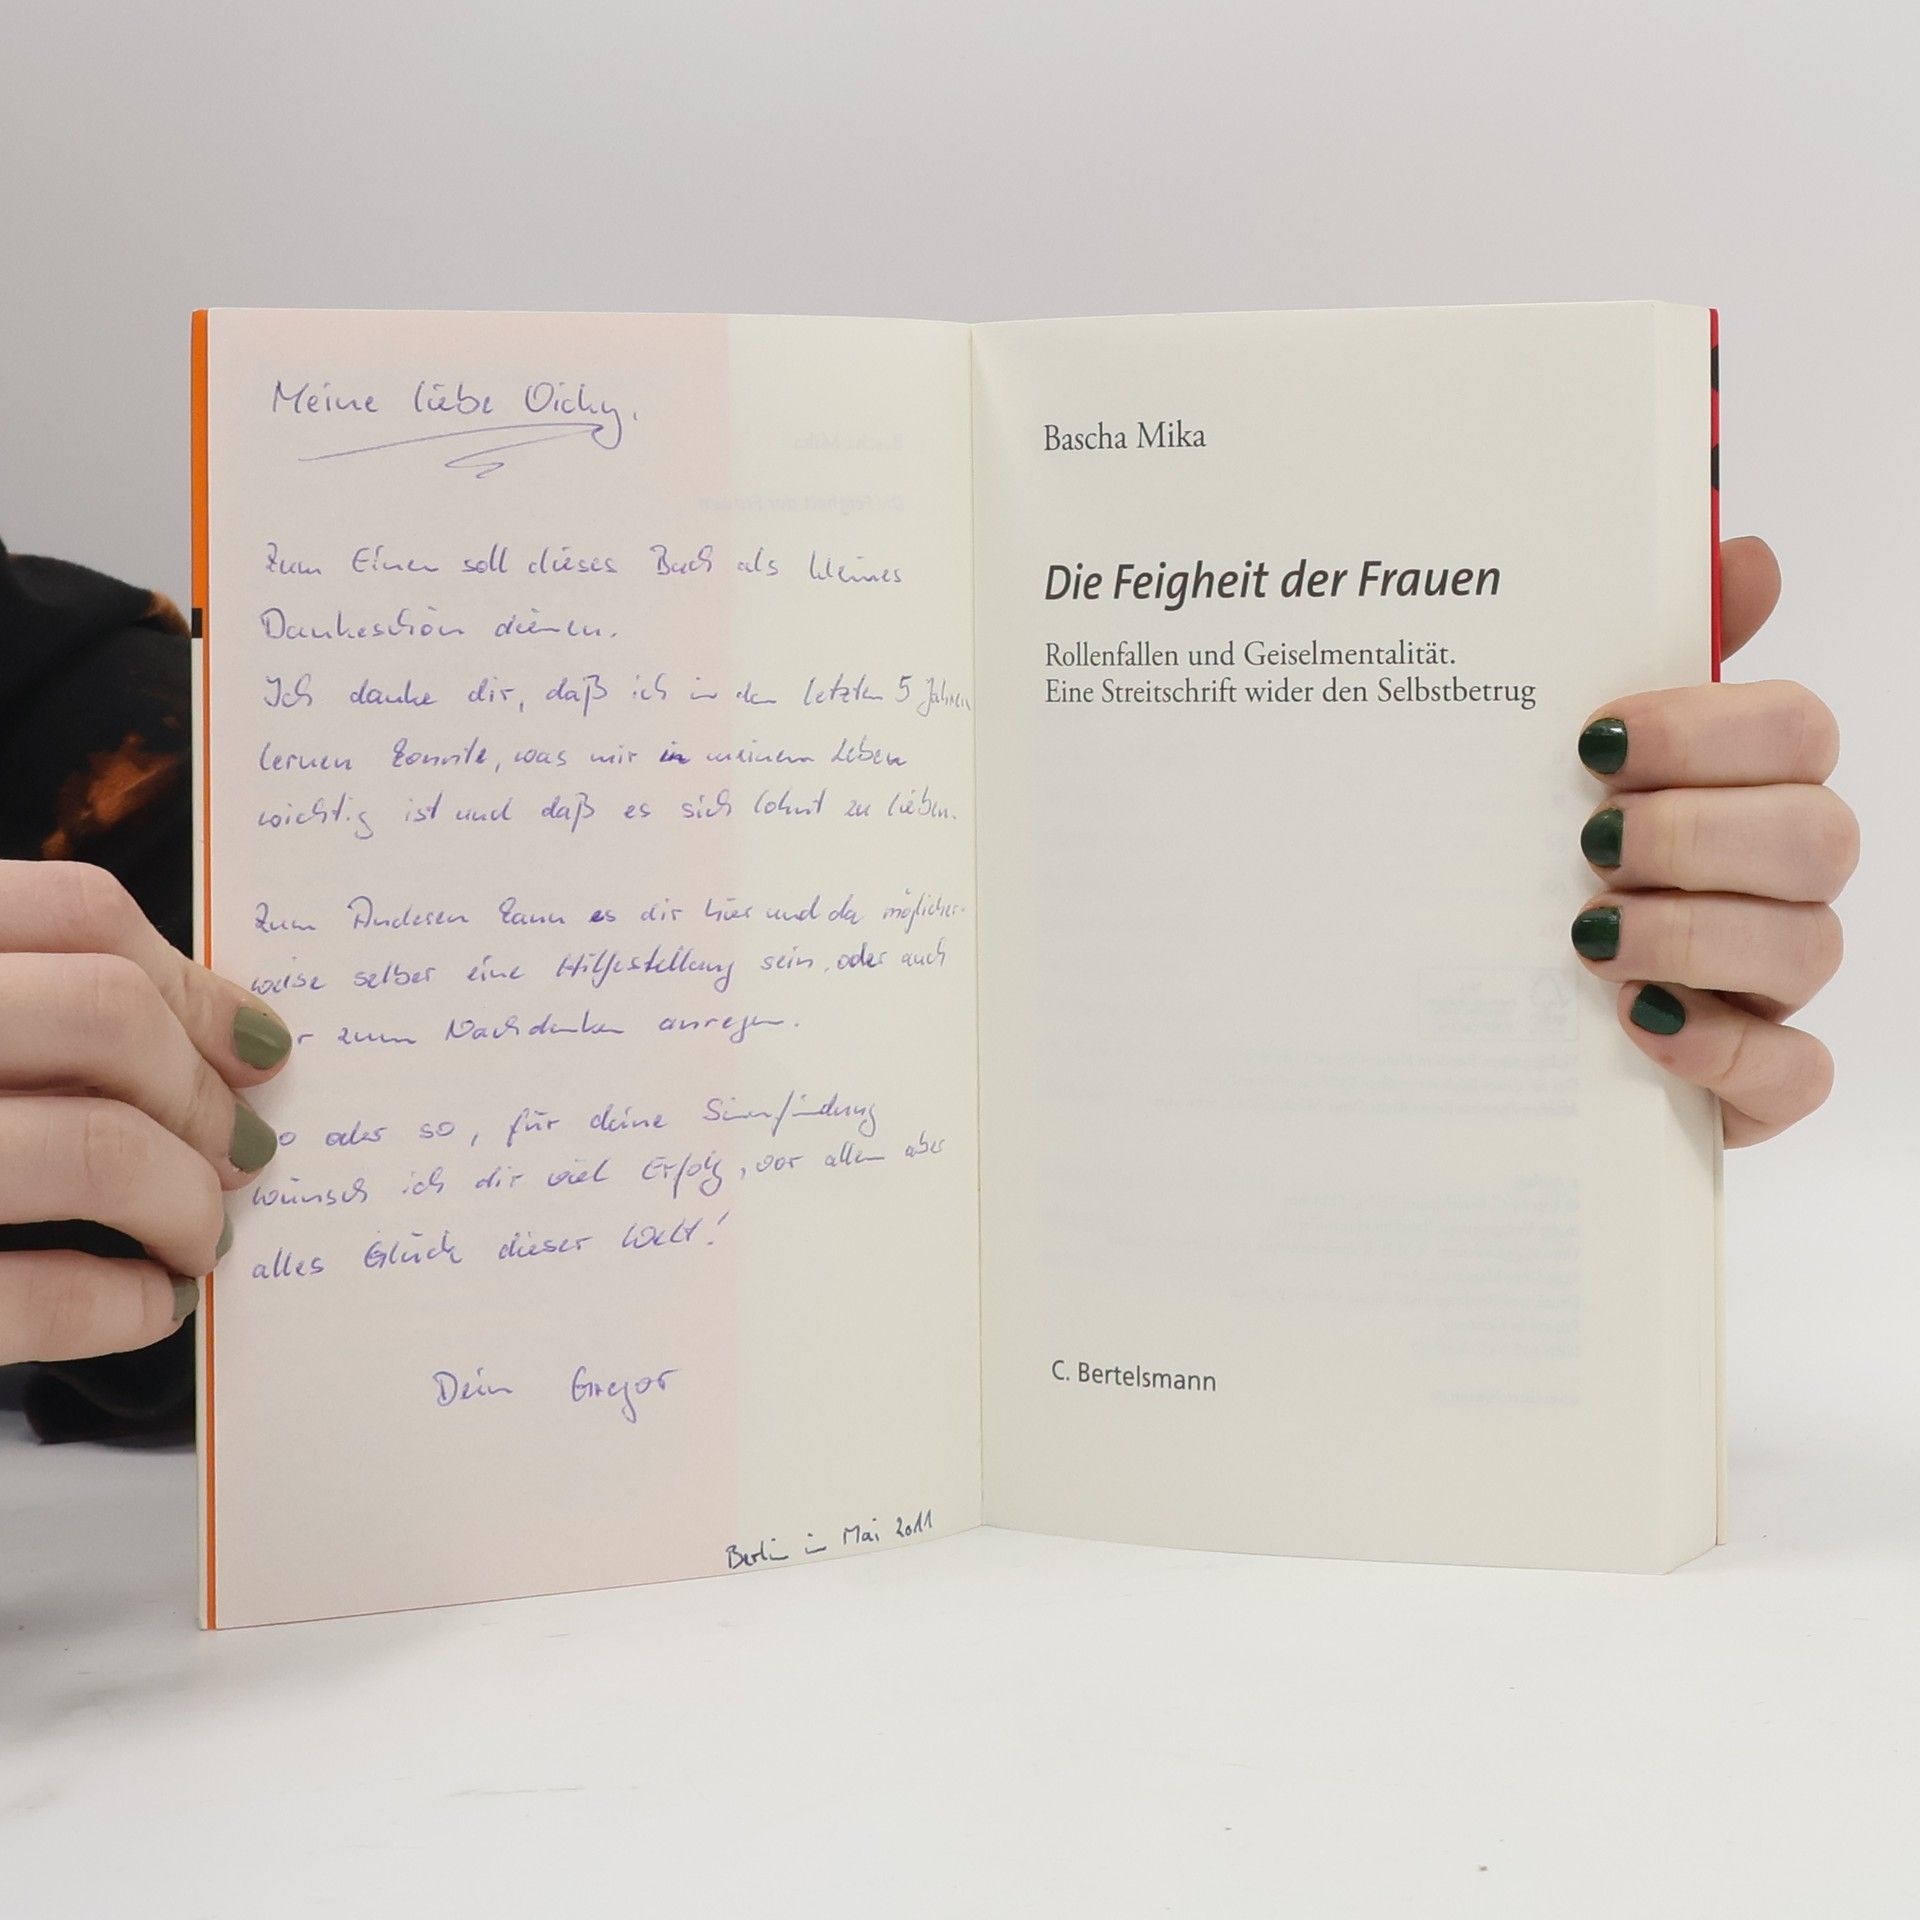 Meine liebe Vicky,
Zum Einen soll dieses Buch als kleines
Dankeschön dienen.
Ich danke dir, daß ich in den letzten 5 Jahren
lernen konnte, was mir in meinem Leben
wichtig ist und daß es sich lohnt zu lieben.
Zum Anderen kann es dir hier und da möglicher-
weise selber eine Hilfestellung sein, oder auch
zum Nachdenken anregen.
oder so, für deine Sinnfindung
wünsch ich dir viel Erfolg, vor allem aber
alles Glück dieser Welt!
Dein Gregor
Berlin im Mai 2011
Bascha Mika
Die Feigheit der Frauen
Rollenfallen und Geiselmentalität.
Eine Streitschrift wider den Selbstbetrug
C. Bertelsmann